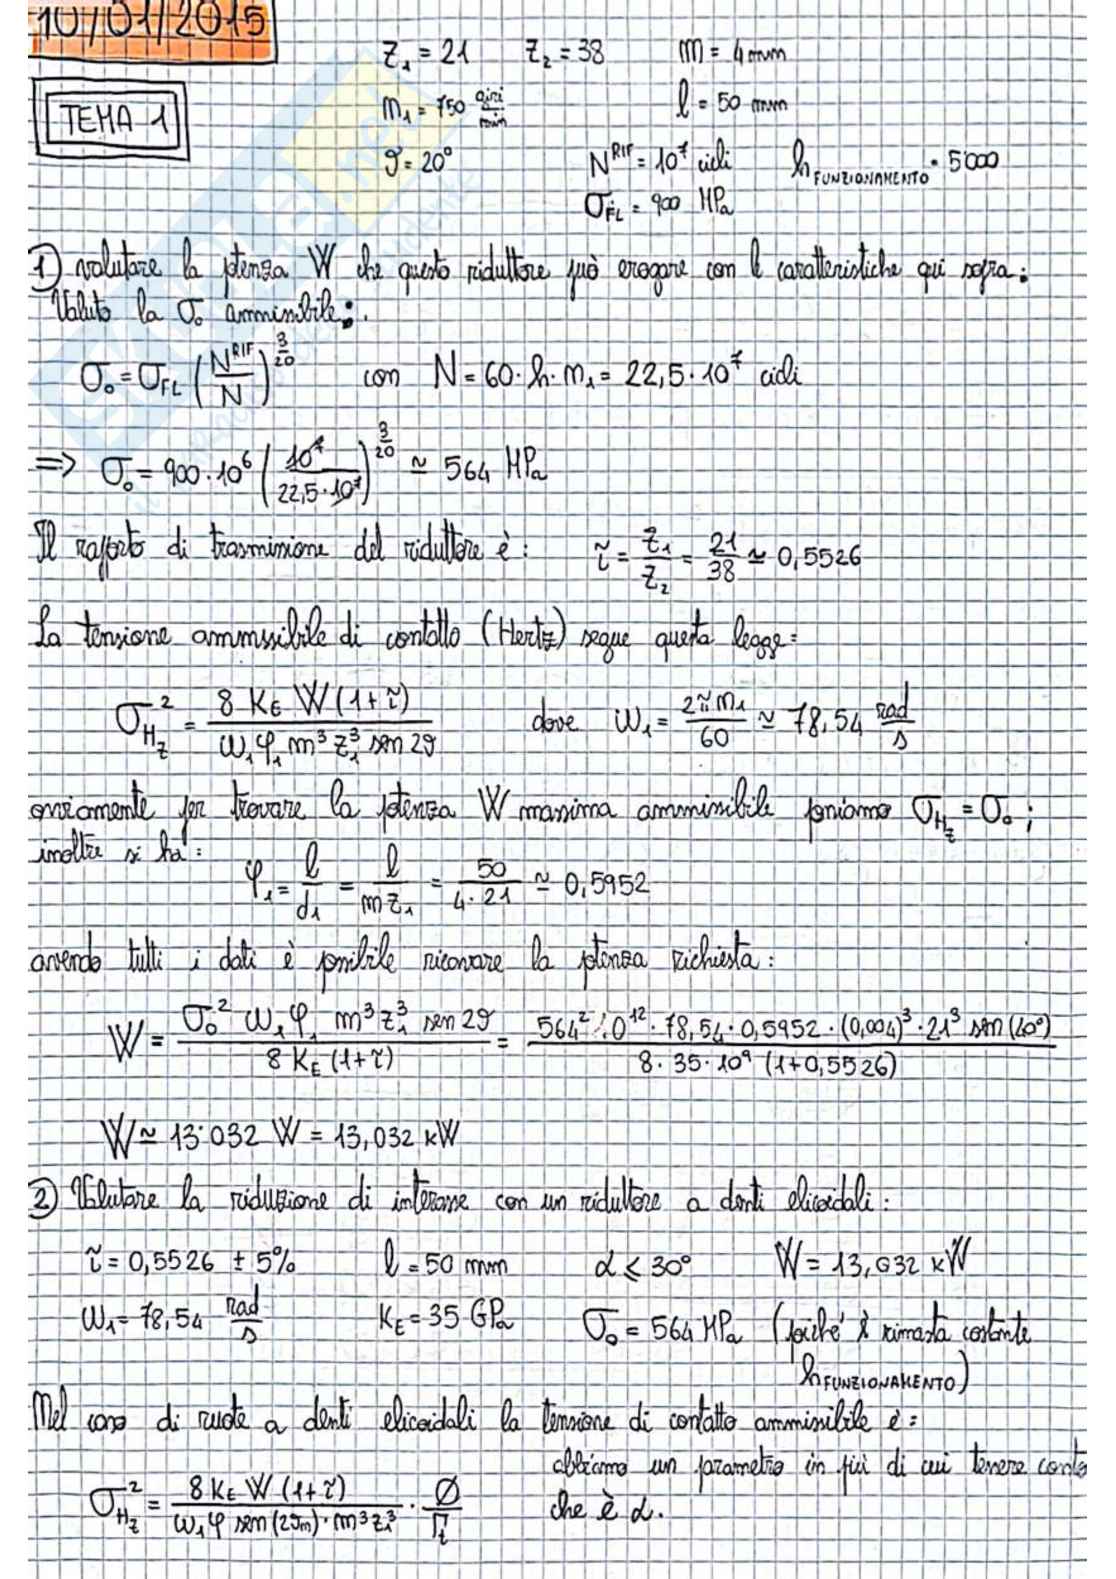 10/01/2015
TEMA 1
Z₁ = 21 Z₂ = 38 m = 4 mm
n₁ = 750 giri/min l = 50 mm
ϑ = 20° N^RIF = 10⁷ cicli h_FUNZIONAMENTO = 5000
σ_FL = 900 MPa
1) valutare la potenza W che questo riduttore può erogare con le caratteristiche qui sopra:
Valuto la σ₀ ammissibile:
σ₀ = σ_FL (N^RIF/N)^(3/20) con N = 60 · h · n₁ = 22,5 · 10⁷ cicli
=> σ₀ = 900 · 10⁶ (10⁷/22,5 · 10⁷)^(3/20) ≃ 564 MPa
Il rapporto di trasmissione del riduttore è: τ = Z₁/Z₂ = 21/38 ≃ 0,5526
La tensione ammissibile di contatto (Hertz) segue questa legge:
σ_Hz² = 8 K_E W (1+τ) / ω₁ φ₁ m³ z₁³ sen 2ϑ dove ω₁ = 2π n₁/60 ≃ 78,54 rad/s
ovviamente per trovare la potenza W massima ammissibile poniamo σ_Hz = σ₀ ;
inoltre si ha: φ₁ = l/d₁ = l/m z₁ = 50/4·21 ≃ 0,5952
avendo tutti i dati è possibile ricavare la potenza richiesta:
W = σ₀² ω₁ φ₁ m³ z₁³ sen 2ϑ / 8 K_E (1+τ) = 564² · 10¹² · 78,54 · 0,5952 · (0,004)³ · 21³ sen (40°) / 8 · 35 · 10⁹ (1+0,5526)
W ≃ 13˙032 W = 13,032 kW
2) Valutare la riduzione di interasse con un riduttore a denti elicoidali:
τ = 0,5526 ± 5% l = 50 mm α ⩽ 30° W = 13,032 kW
ω₁ = 78,54 rad/s K_E = 35 GPa σ₀ = 564 MPa (poiché è rimasta costante
h_FUNZIONAMENTO)
Nel caso di ruote a denti elicoidali la tensione di contatto ammissibile è:
abbiamo un parametro in più di cui tenere conto
σ_Hz² = 8 K_E W (1+τ) / ω₁ φ sen(2ϑ_m) · m³ z₁³ · Ø/Γ_t che è α.